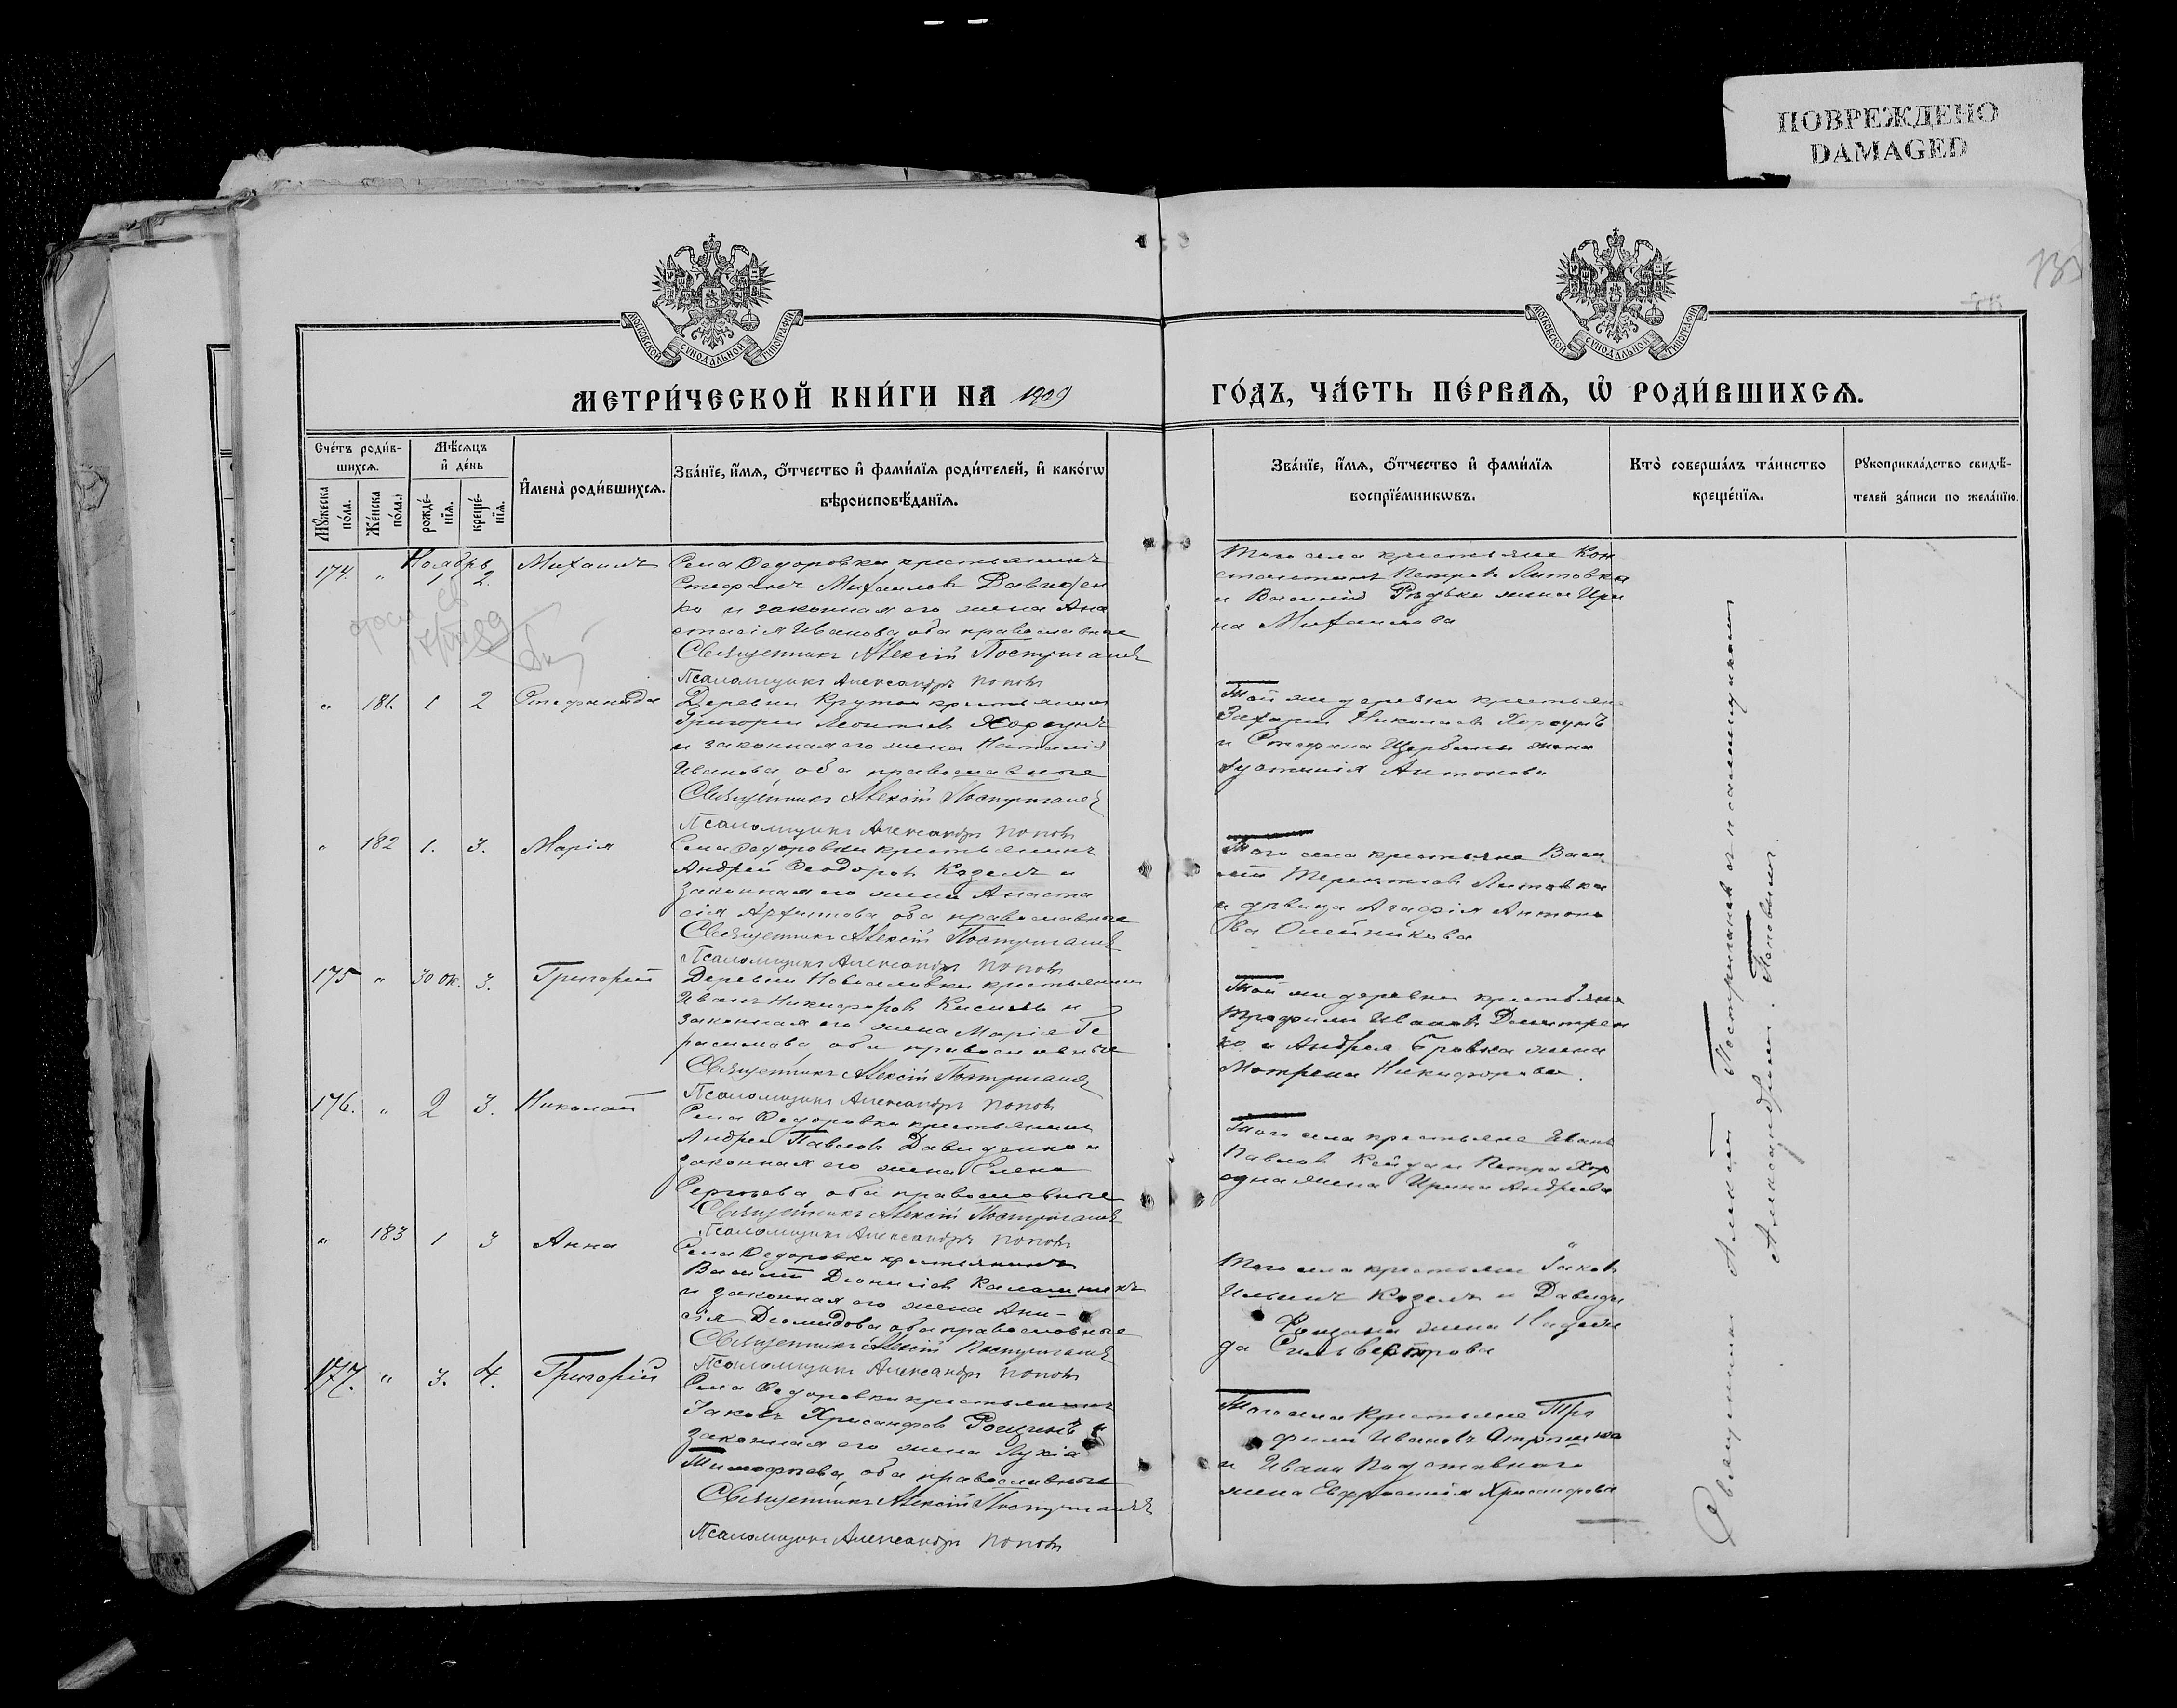 ПОВРЕЖДЕНО
DAMAGED
МОСКОВСКОЙ СѴНОДАЛЬНОЙ ТИПОГРАФІИ
МОСКОВСКОЙ СѴНОДАЛЬНОЙ ТИПОГРАФІИ
МЕТРИ́ЧЕСКОЙ КНИ́ГИ НА 1909 ГО́ДЪ, ЧА́СТЬ ПЕ́РВАЯ, Ѡ҆ РОДИ́ВШИХСЯ.
Сче́тъ роди́в-
шихся.
Мѣ́сяцъ
и҆ де́нь
Мꙋ́жеска
по́ла.
Же́нска
по́ла.
рожде́-
нїя.
креще́-
нїя.
И҆мена̀ роди́вшихся.
Зва́нїе, и҆́мя, ѻ҆́тчество и҆ фами́лїя роди́телей, и҆ како́гѡ
вѣроисповѣ́данїя.
Зва́нїе, и҆́мя, ѻ҆́тчество и҆ фами́лїя
воспрїе́мникѡвъ.
Кто̀ соверша́лъ та́инство
креще́нїя.
Рꙋкоприкла́дство свидѣ́-
телей за́писи по жела́нїю.
Ноябрь
174. " 1 2. Михаилъ
Села Ѳедоровки крестьянинъ
Стефанъ Михаиловъ Давиден
ко и законная его жена Ана
стасія Иванова оба православные
Священникъ Алексій
Псаломщикъ Александръ Поповъ
Того села крестьяне Кон
стантинъ Петровъ Литовка
и Василія Рѣдьки жена Ири
на Михаилова
" 181. 1 2 Стефанида
Деревни Крутой крестьянинъ
Григорій Леонтьевъ Хорунъ
и законная его жена Наталія
Иванова оба православные
Священникъ Алексій
Псаломщикъ Александръ Поповъ
Той же деревни крестьяне
Захарій Николаевъ Хорунъ
и Стефана Щербины жена
Іустинія Антонова
" 182 1. 3. Марія
Села Ѳедоровки крестьянинъ
Андрей Ѳеодоровъ Козелъ и
законная его жена Анаста
сія Архипова оба православные
Священникъ Алексій
Псаломщикъ Александръ Поповъ
Того села крестьяне Васи
лій Литовка
и дѣвица Агафія Антоно
ва Олейникова
175 " 30 ок. 3. Григорій
Деревни крестьянинъ
Иванъ Никифоровъ Кисиль и
законная его жена Марія Ге
расимова оба православные
Священникъ Алексій
Псаломщикъ Александръ Поповъ
Той же деревни крестьяне
Трофимъ Ивановъ Дмитрен
ко и Андрея Бровка жена
Матрена Никифорова.
176. " 2 3. Николай
Села Ѳедоровки крестьянинъ
Андрей Павловъ Давиденко и
законная его жена Елена
Сергѣева оба православные
Священникъ Алексій
Псаломщикъ Александръ Поповъ
Того села крестьяне Иванъ
Павловъ и Петра Хор
жена Ирина Андреева
" 183 1 3 Анна
Села Ѳедоровки крестьянинъ
Василій Діонисіевъ Калашникъ
и законная его жена Ани-
сія Діомидова оба православные
Священникъ Алексій
Псаломщикъ Александръ Поповъ
Того села крестьяне Іаковъ
Ильинъ Козелъ и Давида
Рощина жена Надеж
да Сильвестрова
177. " 3. 4. Григорій
Села Ѳедоровки крестьянинъ
Іаковъ Хрисанфовъ Рощинъ и
законная его жена Лукія
Тимофѣева, оба православные
Священникъ Алексій
Псаломщикъ Александръ Поповъ
Того села крестьяне Тро
фимъ Ивановъ
и Ивана Подставного
жена Евфросинія Хрисанфова
Священникъ Алексій съ псаломщикомъ
Александромъ Поповымъ.